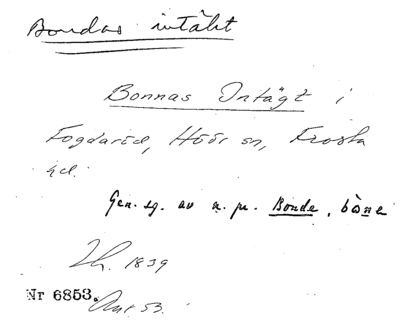 Bondas intäkt
Bonnas Intägt i
Fogdaröd, Höör sn, Frosta
hd.
Gen. sg. av n. pr. Bonde, bònne
1839
Nr 6853.